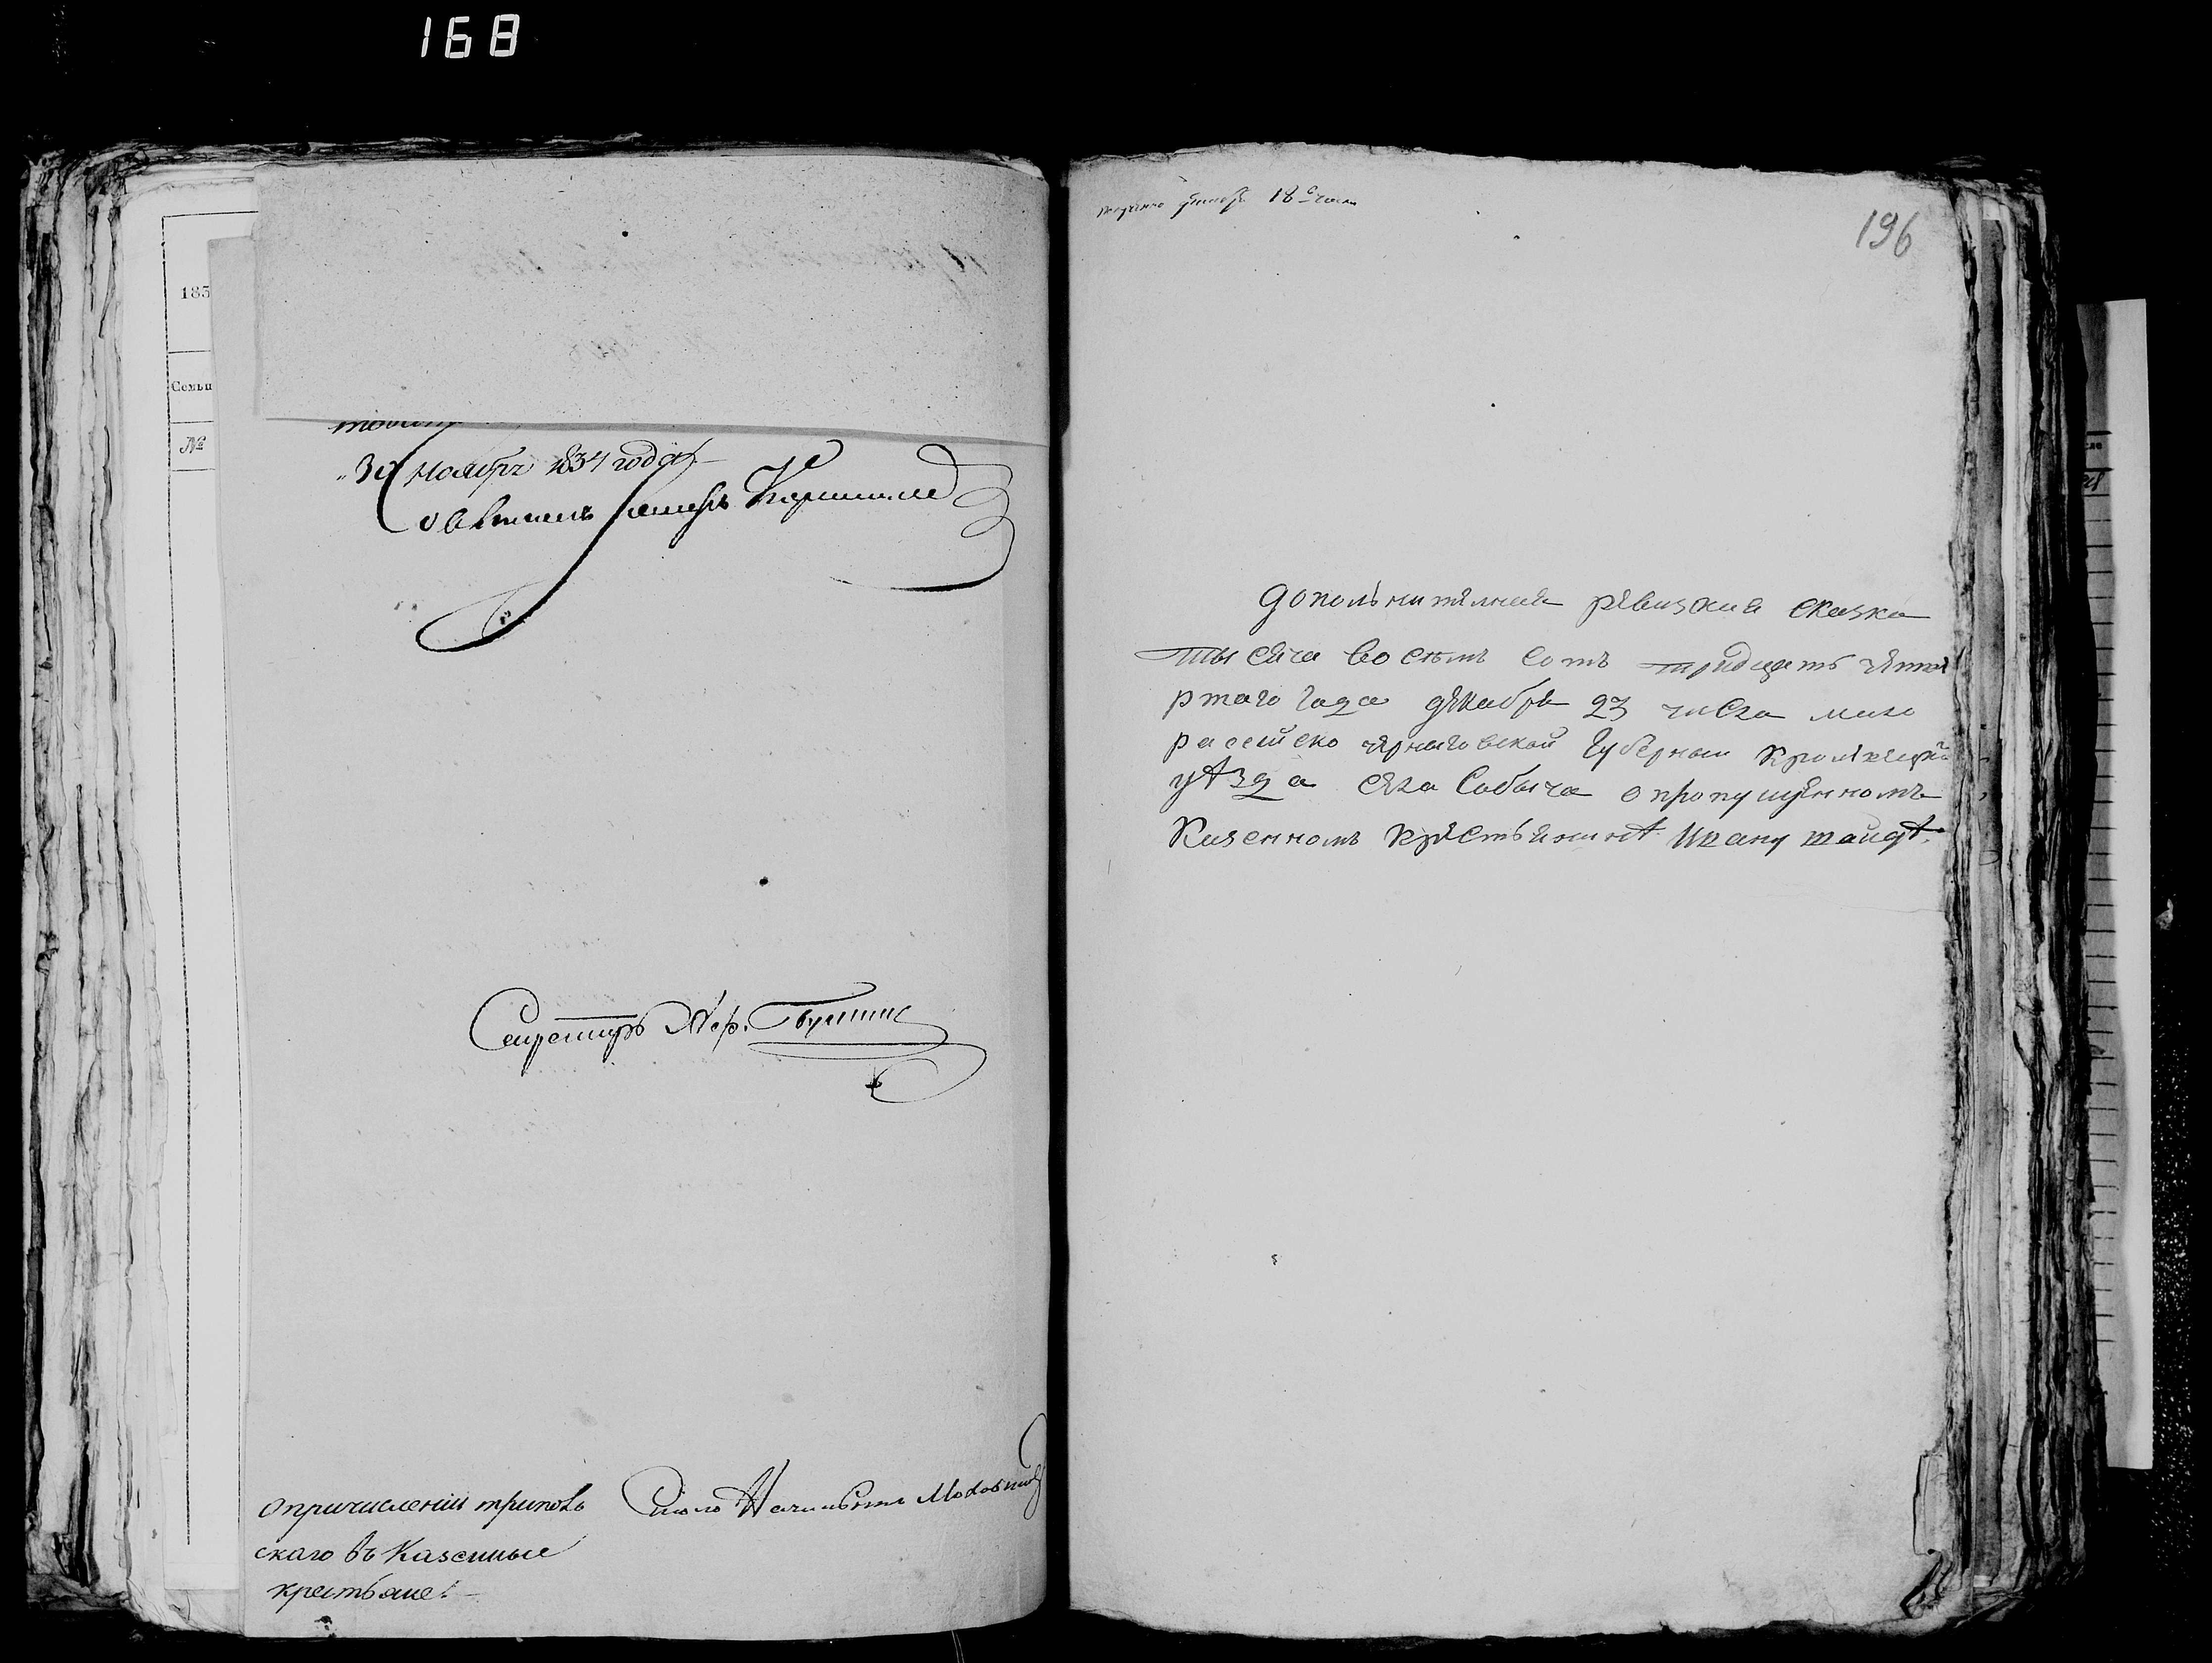 168
185
Семьи
№
30 ноября 1834 года
Советникъ
Секретарь
о причисленіи трипов
скаго въ Казенные
крестьяне.
Столо Начальникъ
18 
196
дополънитялная рявизкия сказка
тысяча восемъ сотъ тридцать чятвя
ртаго года дякабря 23 числа мало
рассійско чярниговской Губернии кролявяцкй
уѣзда сяла Собыча о пропущянномъ
Казенномъ крястьянинѣ Ивану шайдѣ.